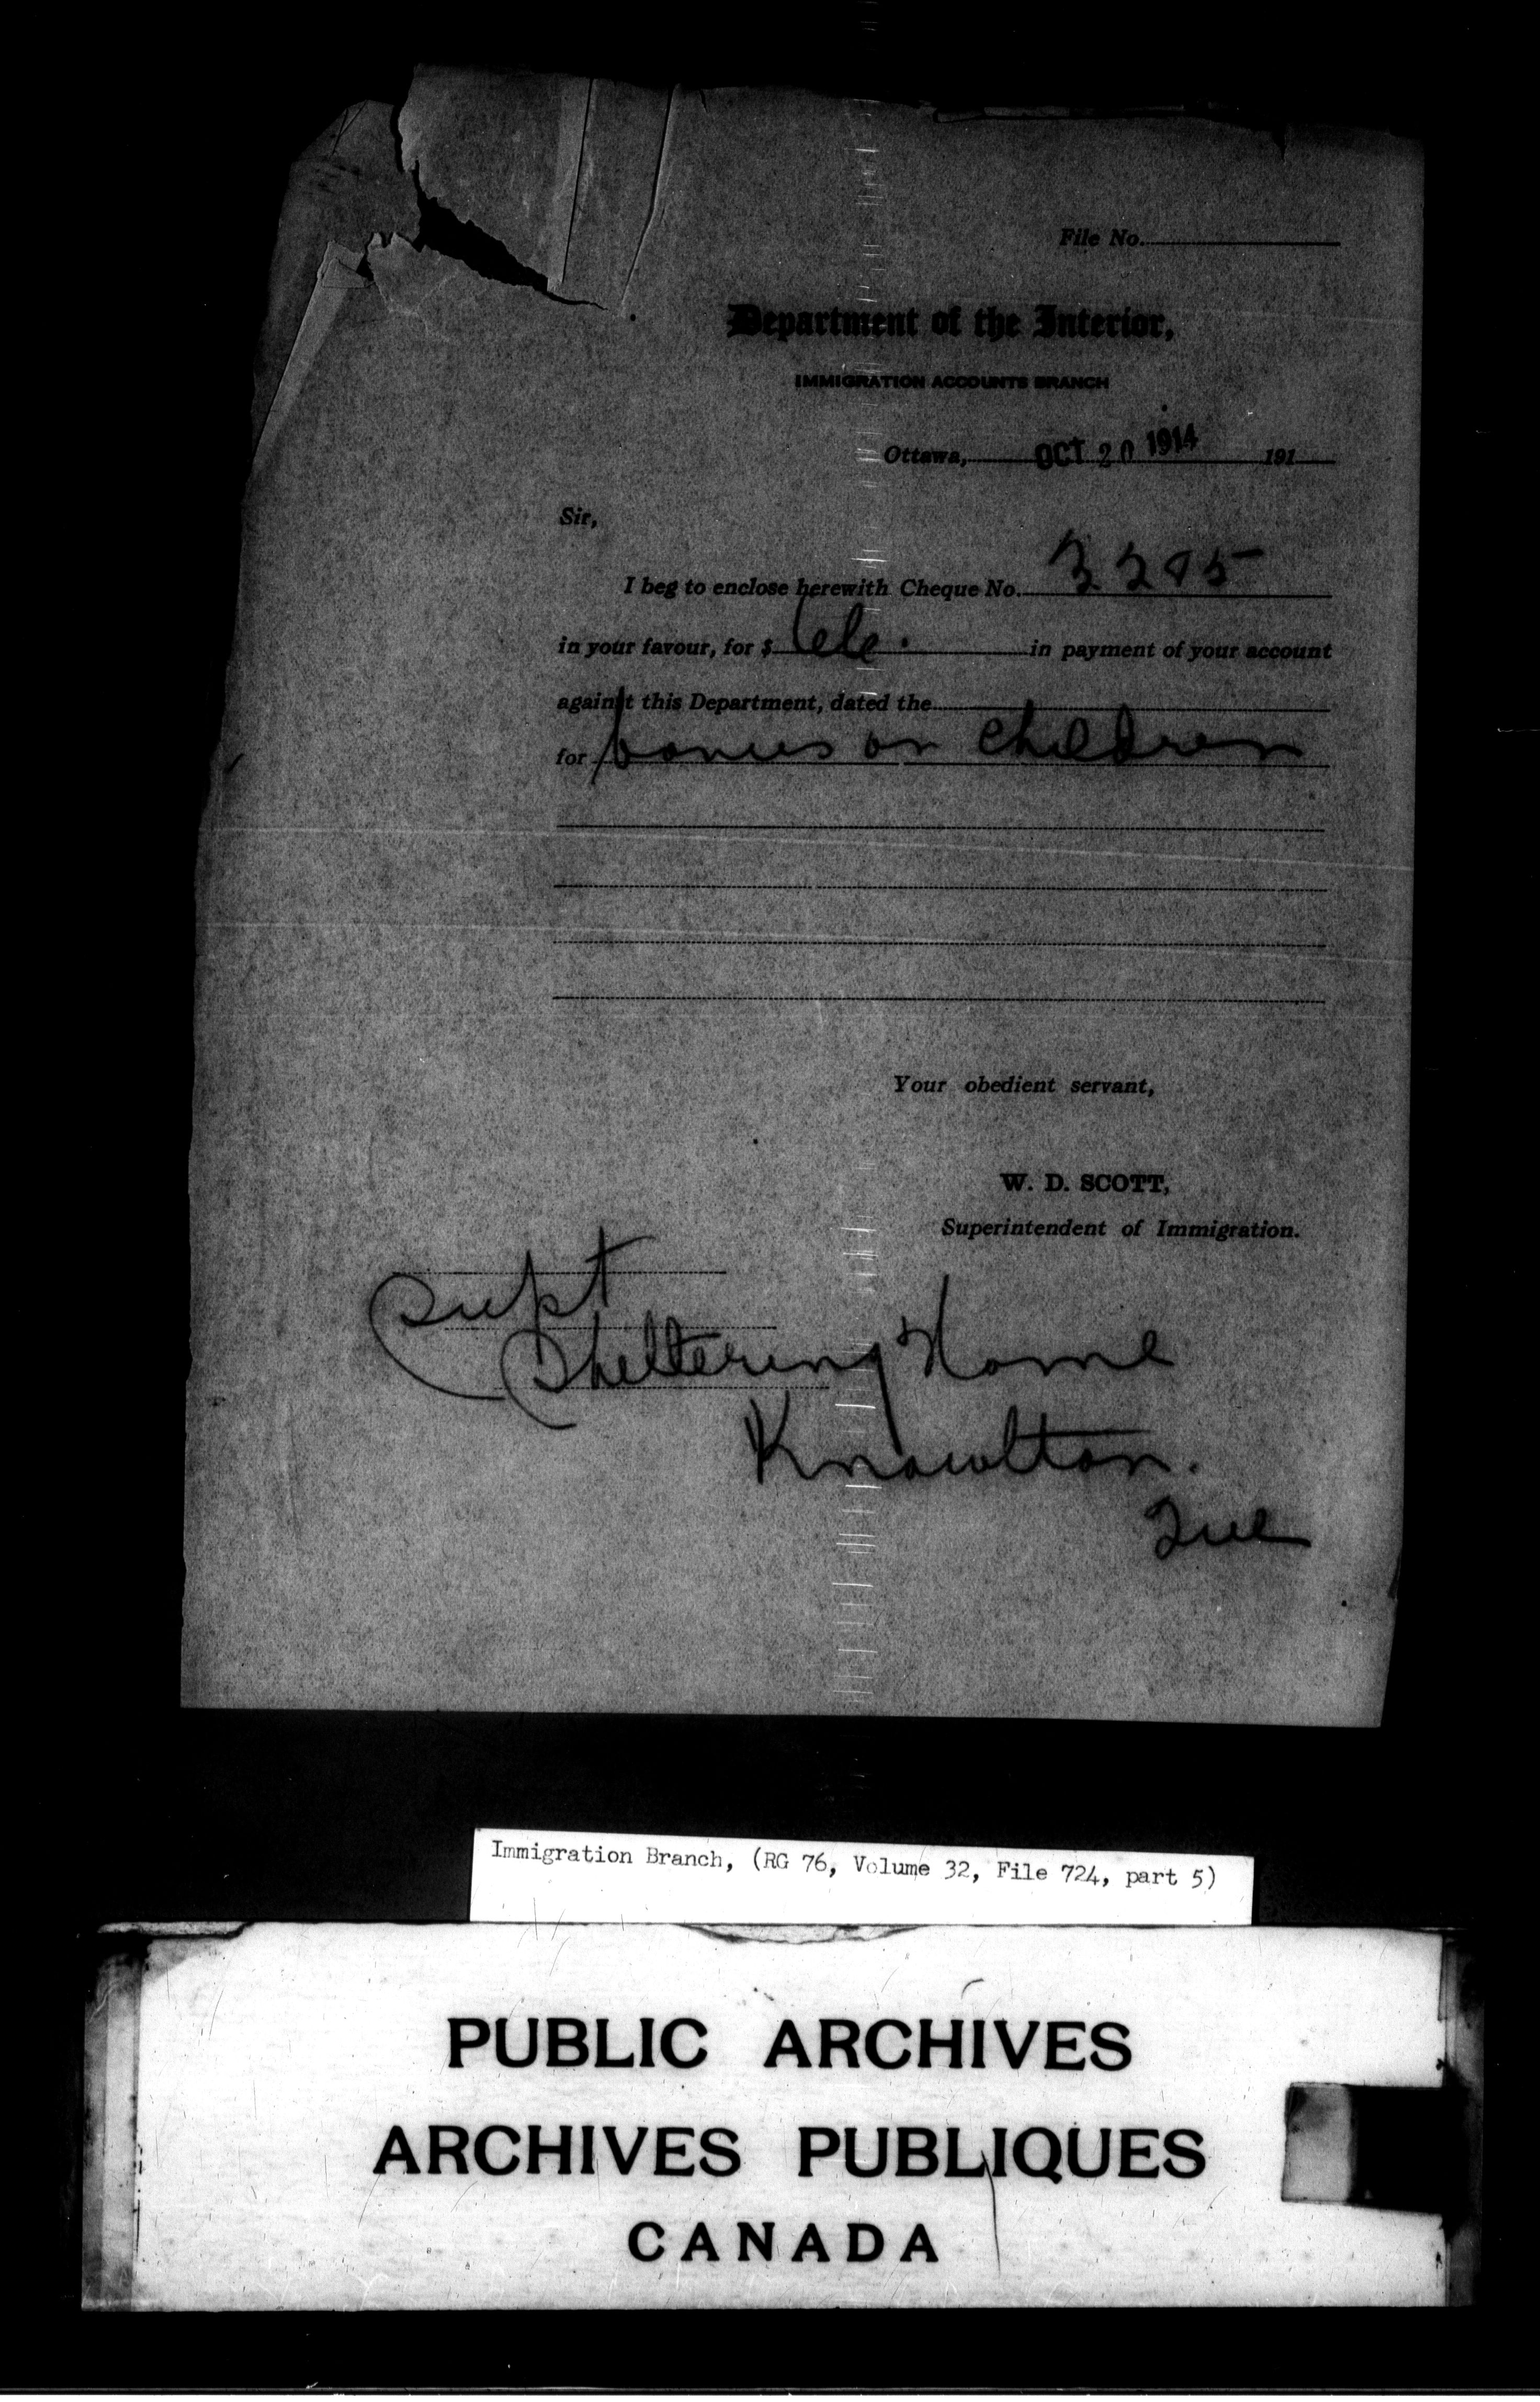 File No.
Department of the Interior,
IMMIGRATION ACCOUNTS BRANCH
Ottawa, OCT 20 1914 191
Sir,
I beg to enclose herewith Cheque No. 3295
in your favour, for $ in payment of your account
against this Department, dated the
for bonus on children
Your obedient servant,
W. D. SCOTT,
Superintendent of Immigration.
Supt
Sheltering Home
Knowlton.
Que
Immigration Branch, (RG 76, Volume 32, File 724, part 5)
PUBLIC ARCHIVES
ARCHIVES PUBLIQUES
CANADA